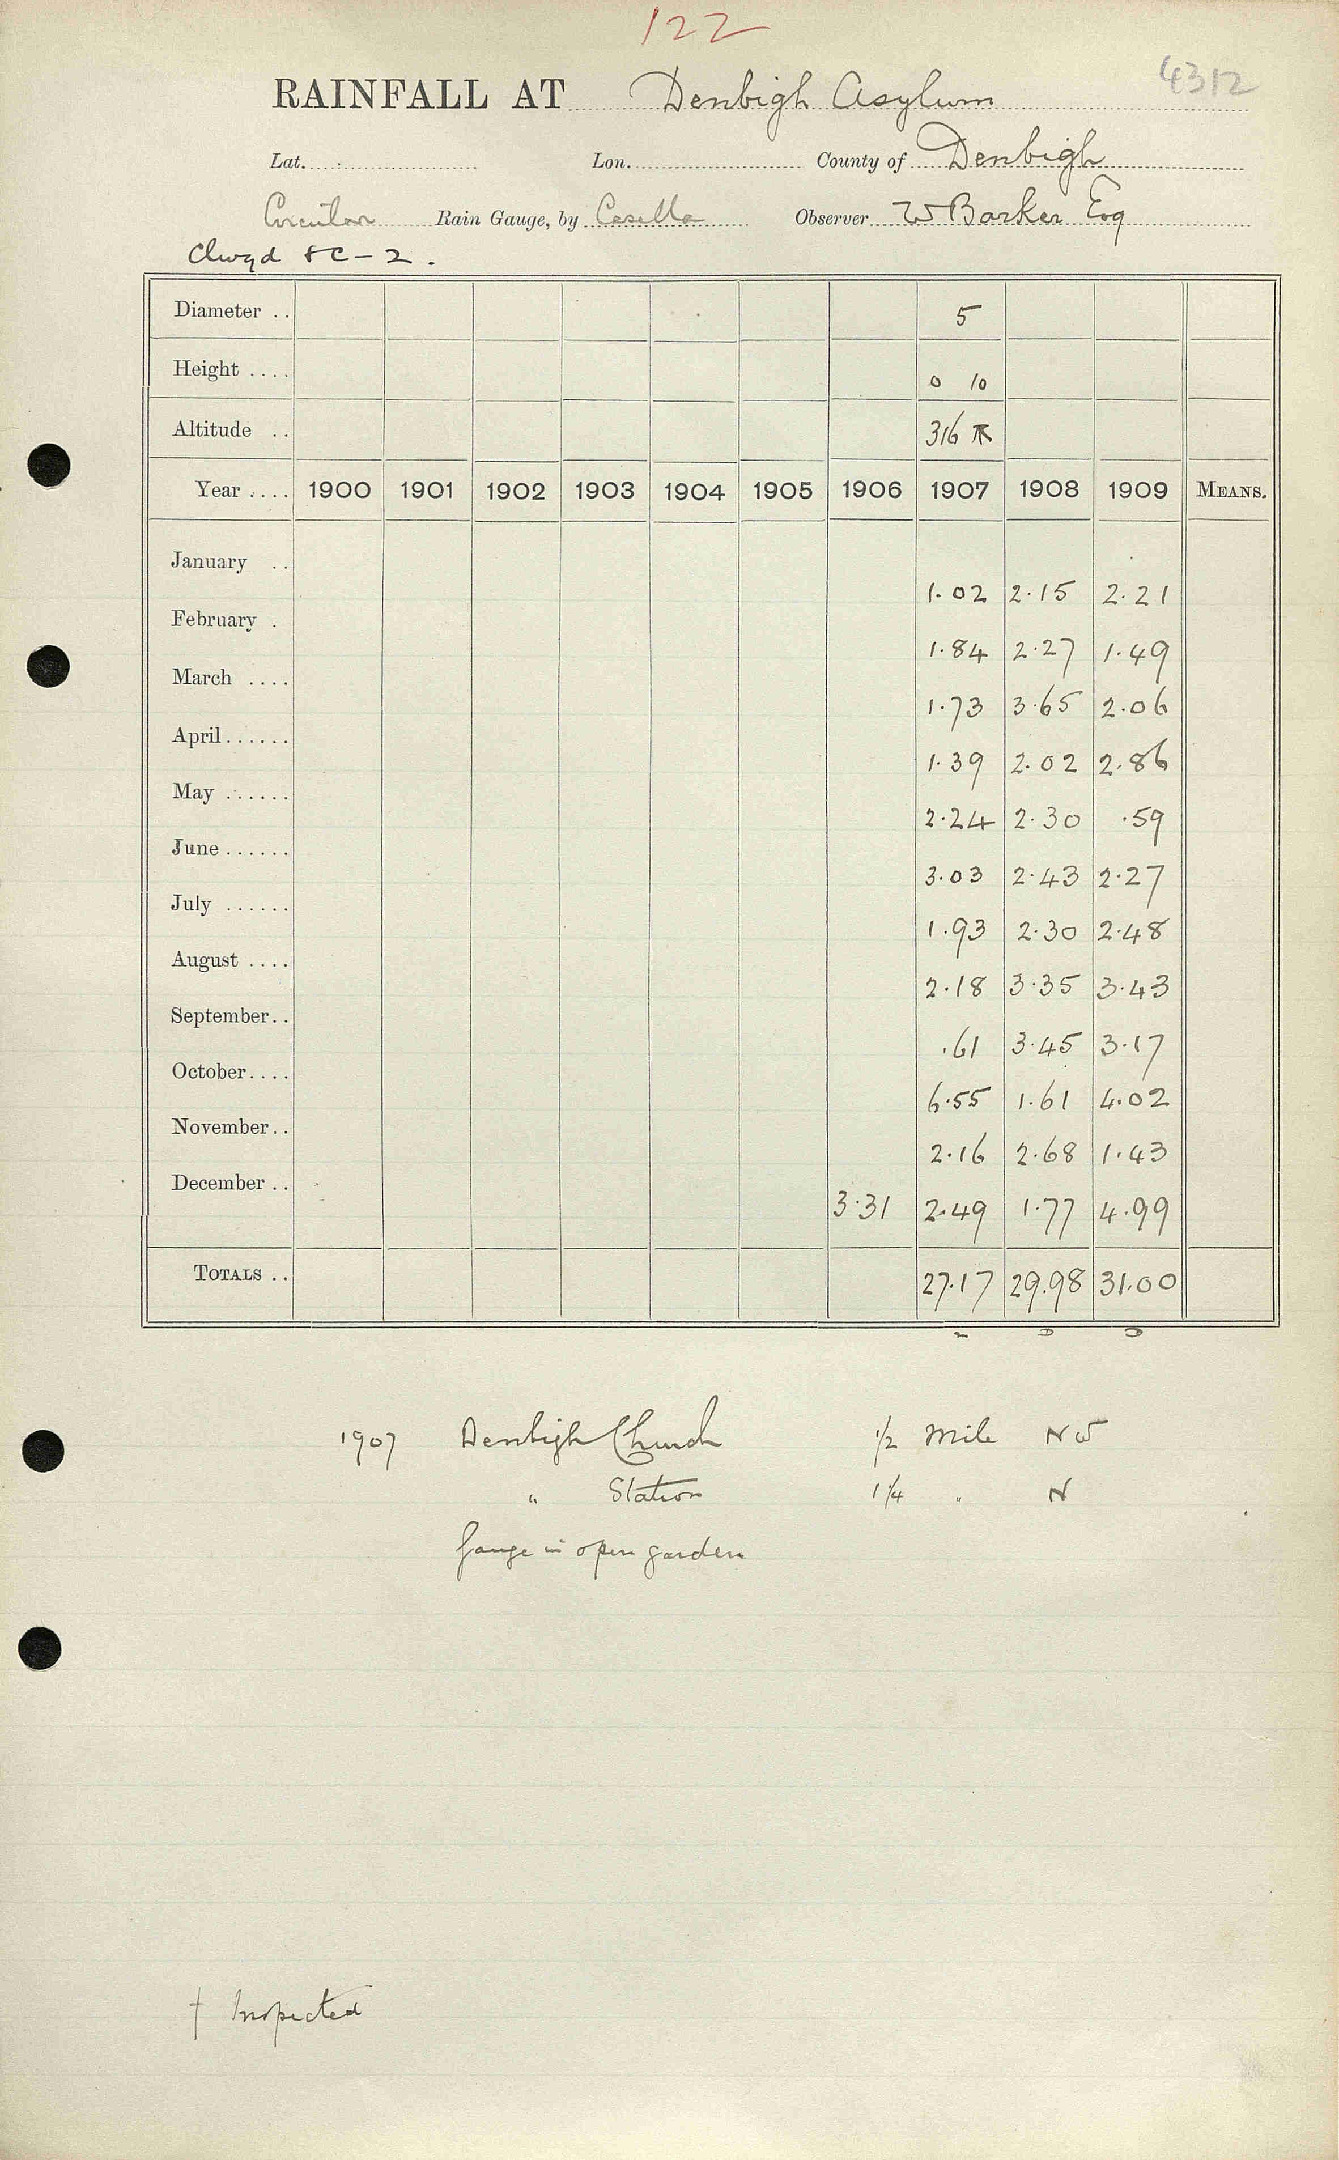 122
RAINFALL AT Denbigh Asylum 4312
Lat. Lon. County of Denbigh
Circular Rain Gauge, by Casella Observer W Barker Esq
Clwyd &C - 2.
Diameter .. 5
Height .... 0 10
Altitude .. 316
Year .... 1900 1901 1902 1903 1904 1905 1906 1907 1908 1909 MEANS.
January .. 1.02 2.15 2.21
February . 1.84 2.27 1.49
March .... 1.73 3.65 2.06
April...... 1.39 2.02 2.86
May ...... 2.24 2.30 .59
June...... 3.03 2.43 2.27
July ...... 1.93 2.30 2.48
August .... 2.18 3.35 3.43
September.. .61 3.45 3.17
October.... 6.55 1.61 4.02
November.. 2.16 2.68 1.43
December .. 3.31 2.49 1.77 4.99
TOTALS .. 27.17 29.98 31.00
1907 Denbigh Church 1/2 Mile NW
" Station 1 1/4 " N
Gauge in open garden
† Inspected